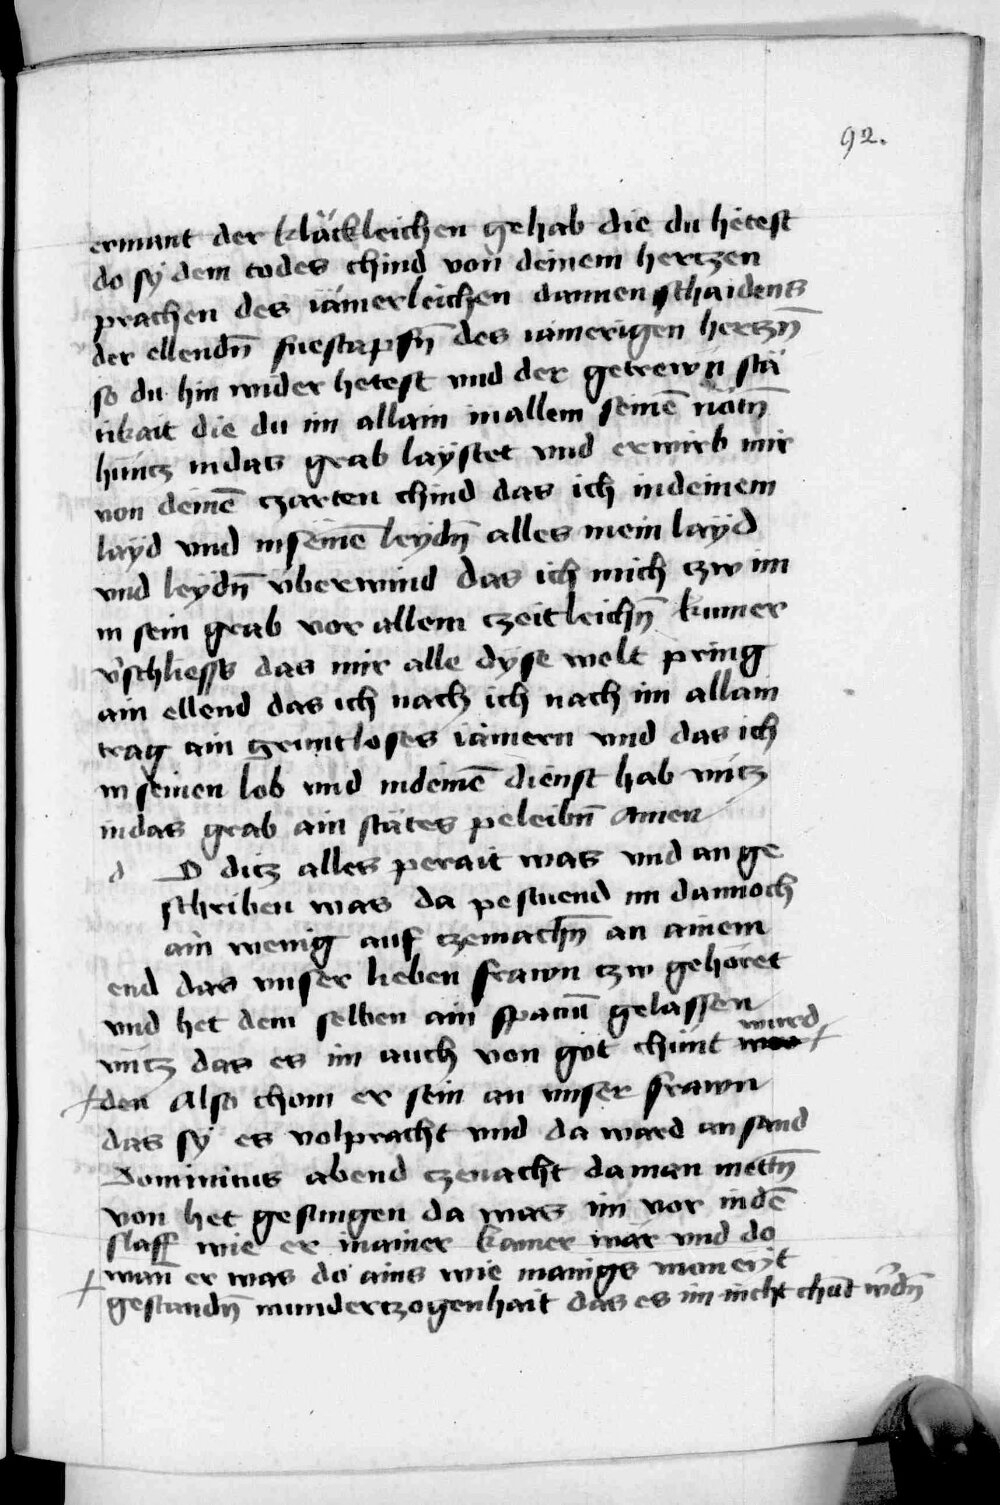 92.
ermant der kläckleichen gehab die du hetest
do sÿ dem todes chind von deinem hertzen
prachen des iämerleichen dannen schaidens
der ellendn̄ fuestapfn̄ des iämerigen hertzn̄
so du hin wider hetest vnd der getrewn stä
tikait die du im allain in allem seinē nötn̄
hüntz in das grab laÿstet vnd erwirb mir
von deinē czarten chind das ich in deinem
laÿd vnd in seinē leÿdn̄ alles mein laÿd
vnd leÿdn̄ vberwind das ich mich tzw im
in sein grab vor allem czeitleichn̄ kumer
v'schliess das mir alle dÿse welt pring
ain ellend das ich nach ich nach im allain
trag ain gruntloses iämern vnd das ich
in seinen lob vnd in deinē dienst hab vntz
in das grab ain stätes peleibn̄ Amen
d D ditz alles perait was vnd an ge
schriben was da pestuend im dannoch
ain wenig auf tzemachn̄ an ainem
end das vnser lieben frawn tzw gehöret
vnd het dem selben ain spacīu gelassen
vntz das es im auch von got chünt wurd
den Also chom er sein an vnser frawn
das sÿ es volpracht vnd da ward an sand
Dominicus abend czenacht da man mettn̄
von het gesungen da was im vor in dē
slaff wie er in ainer kamer wär vnd do
wan̄ er was do ains wie manigs mon erÿt
gestandn̄ in undertzogenhait das es im nicht chūd w'dn̄